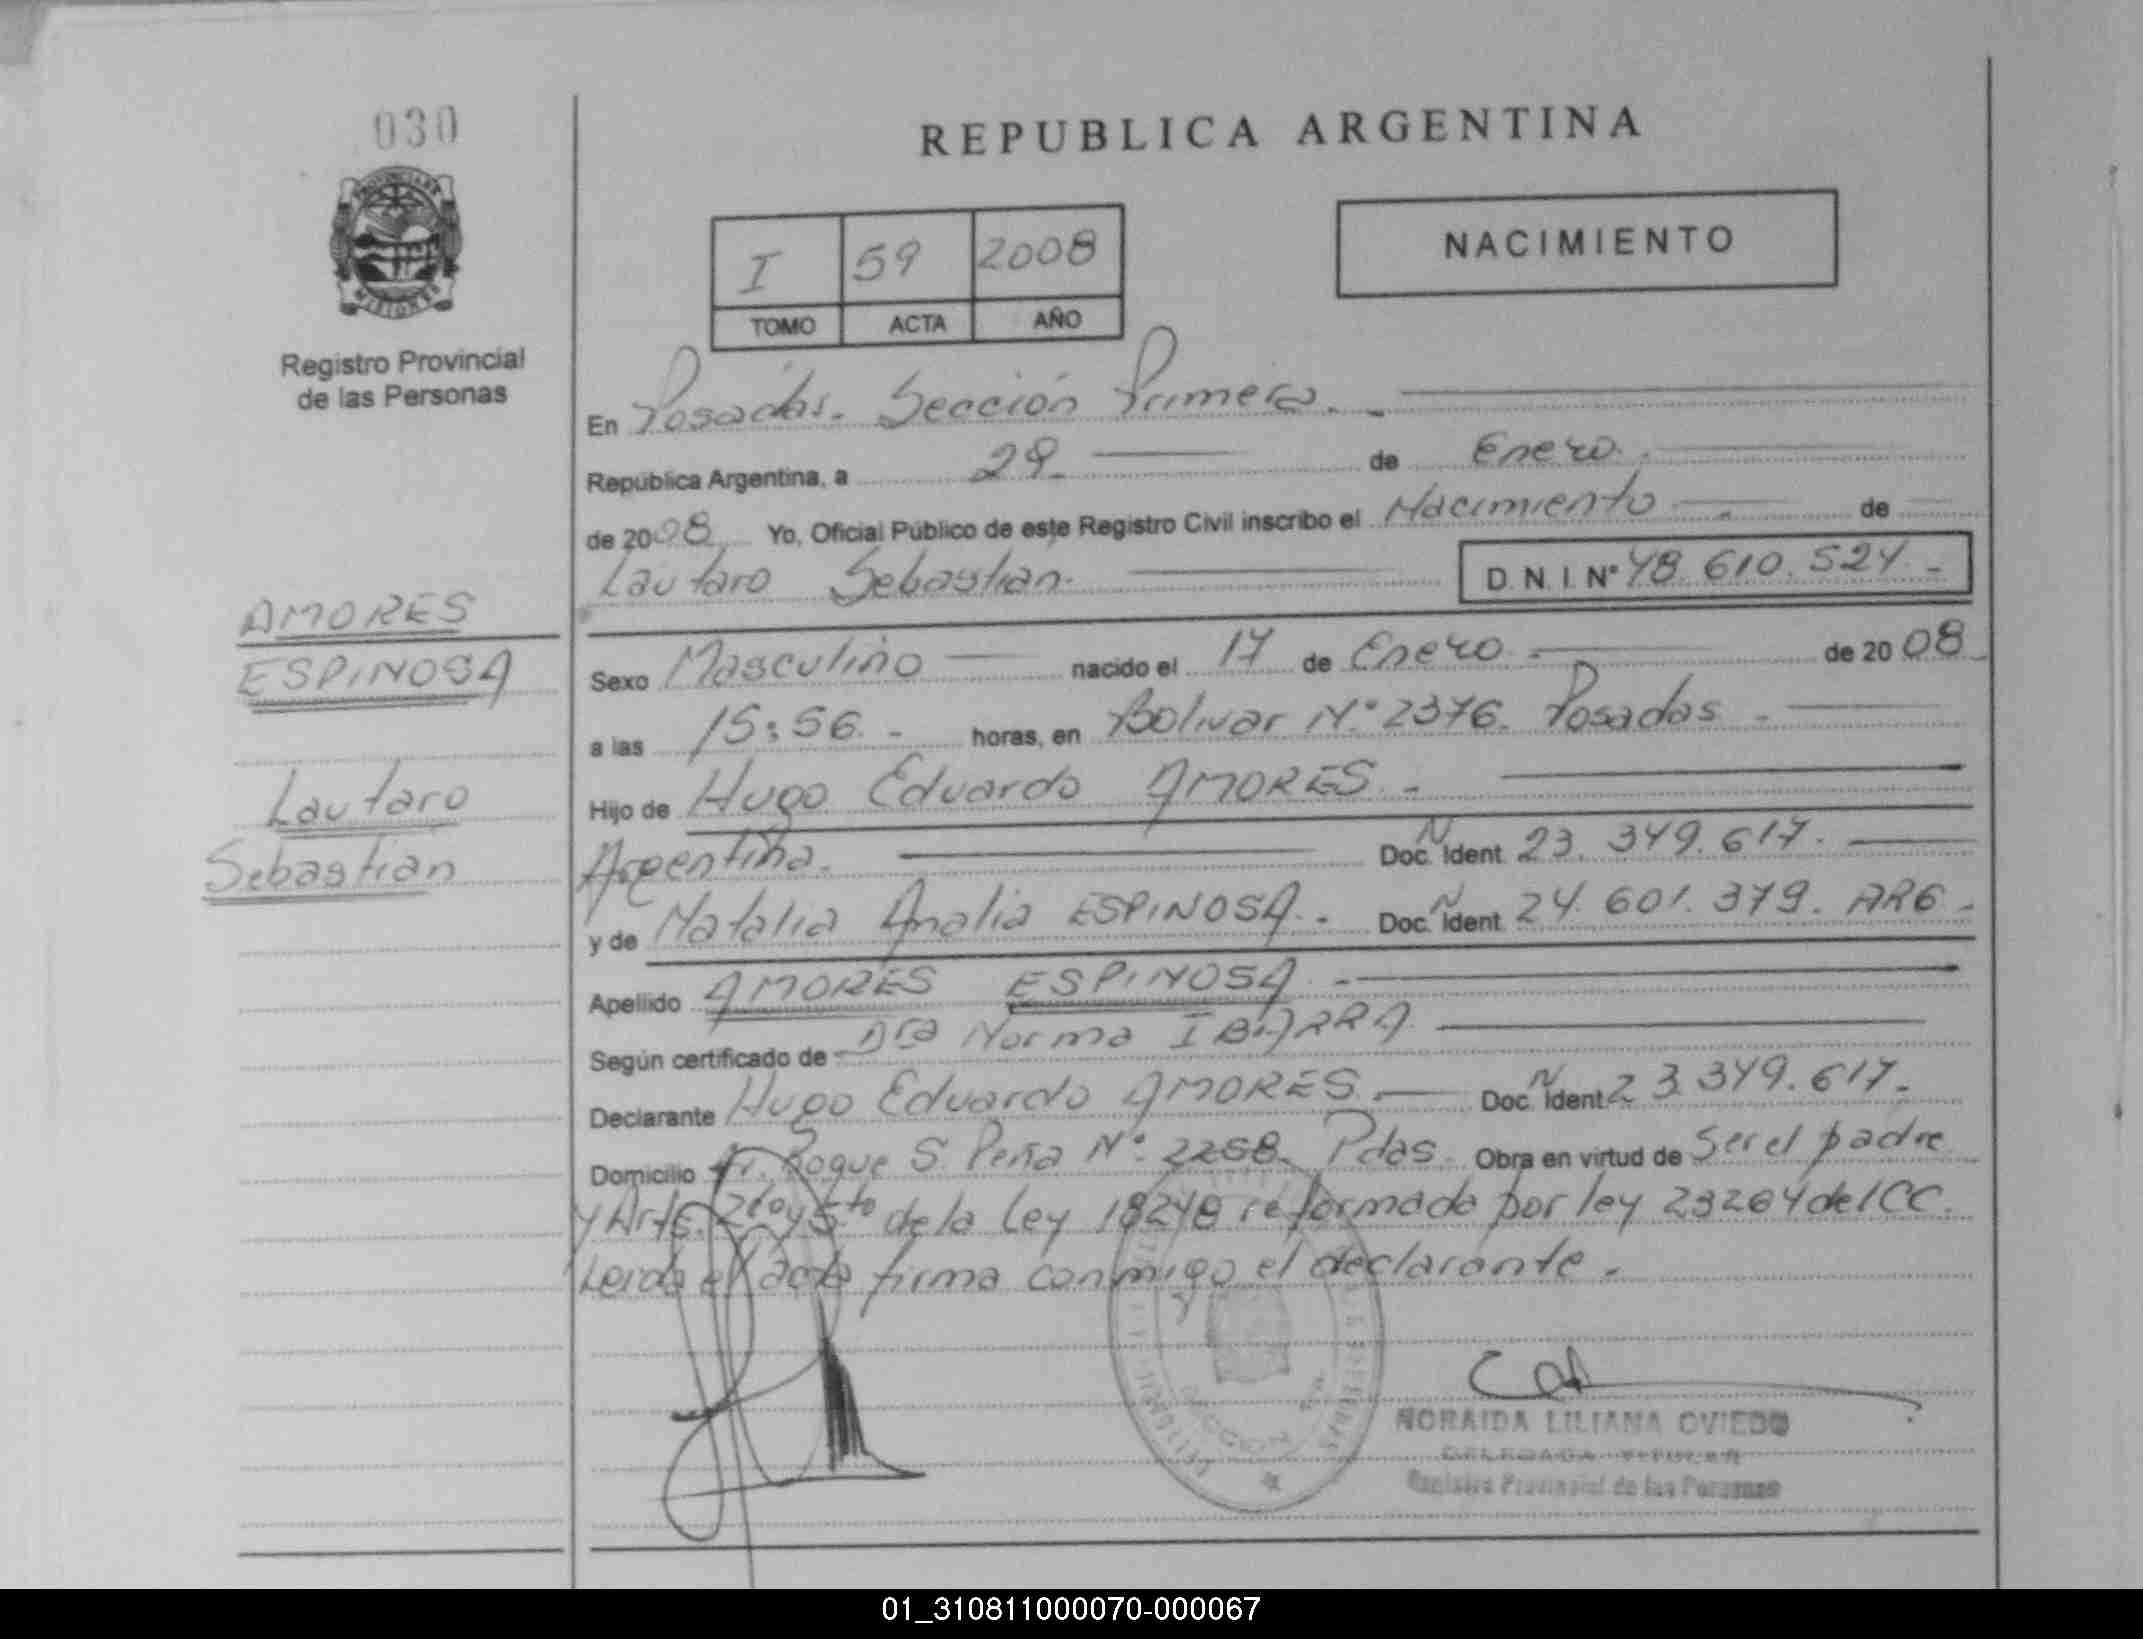 030
Registro Provincial
de las Personas
AMORES
ESPINOSA
Lautaro
Sebastian
REPUBLICA ARGENTINA
I 59 2008
TOMO ACTA AÑO
NACIMIENTO
En Posadas. Sección Primera.
República Argentina, a 29 de Enero
de 2008 Yo, Oficial Público de este Registro Civil inscribo el Nacimiento de
Lautaro Sebastian. D.N.I. N° 48.610.524.-
Sexo Masculino nacido el 17 de Enero de 2008
a las 15:56.- horas, en Bolivar N° 2376. Posadas -
Hijo de Hugo Eduardo AMORES.-
Argentina. Doc. N Ident. 23.349.617.
y de Natalia Analia ESPINOSA.- Doc. N Ident. 24.601.379. ARG-
Apellido AMORES ESPINOSA.-
Según certificado de Dra Norma IBARRA
Declarante Hugo Eduardo AMORES.- Doc. N Ident 23.349.617.-
Domicilio Roque S. Peña N° 2258. Pdas. Obra en virtud de Ser el padre
y Arts. 2do y 5to de la Ley 18248 reformada por ley 23264 del CC.
Leida el acta firma conmigo el declarante.-
NORAIDA LILIANA OVIEDO
DELEGADA TITULAR
Registro Provincial de las Personas
01_310811000070-000067